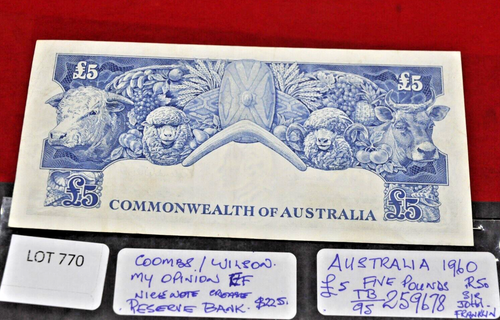 £5 £5
£5 £5
COMMONWEALTH OF AUSTRALIA
LOT 770
COOMBS/WILSON.
MY OPINION EF
NICE NOTE CREASE
RESERVE BANK. $225.
AUSTRALIA 1960
£5 FIVE POUNDS R50
TB/95 259678 SIR JOHN
FRANKLIN